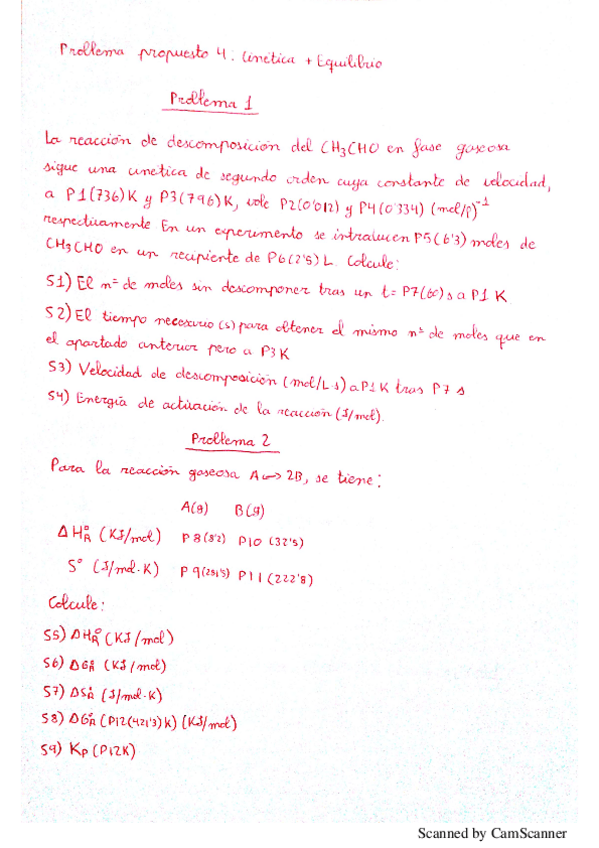 Problema propuesto 4. Cinética + Equilibrio
Problema 1
La reacción de descomposición del CH3CHO en fase gaseosa
sigue una cinética de segundo orden cuya constante de velocidad,
a P1(736)K y P3(796)K, vale P2(0'012) y P4(0'334) (mol/l)⁻¹
respectivamente En un experimento se introducen P5(6'3) moles de
CH3CHO en un recipiente de P6(2'5) L. Calcule:
S1) El nº de moles sin descomponer tras un t= P7(60) s a P1 K
S2) El tiempo necesario (s) para obtener el mismo nº de moles que en
el apartado anterior pero a P3K
S3) Velocidad de descomposición (mol/L·s) a P1 K tras P7 s
S4) Energía de activación de la reacción (J/mol).
Problema 2
Para la reacción gaseosa A ↔ 2B, se tiene:
A(g) B(g)
ΔH°R (KJ/mol) P8(8'2) P10 (32'5)
S° (J/mol·K) P9(251'5) P11(222'8)
Calcule:
S5) ΔH°R (KJ/mol)
S6) ΔG°R (KJ/mol)
S7) ΔS°R (J/mol·K)
S8) ΔG°R (P12(421'3)K) (KJ/mol)
S9) Kp (P12K)
Scanned by CamScanner